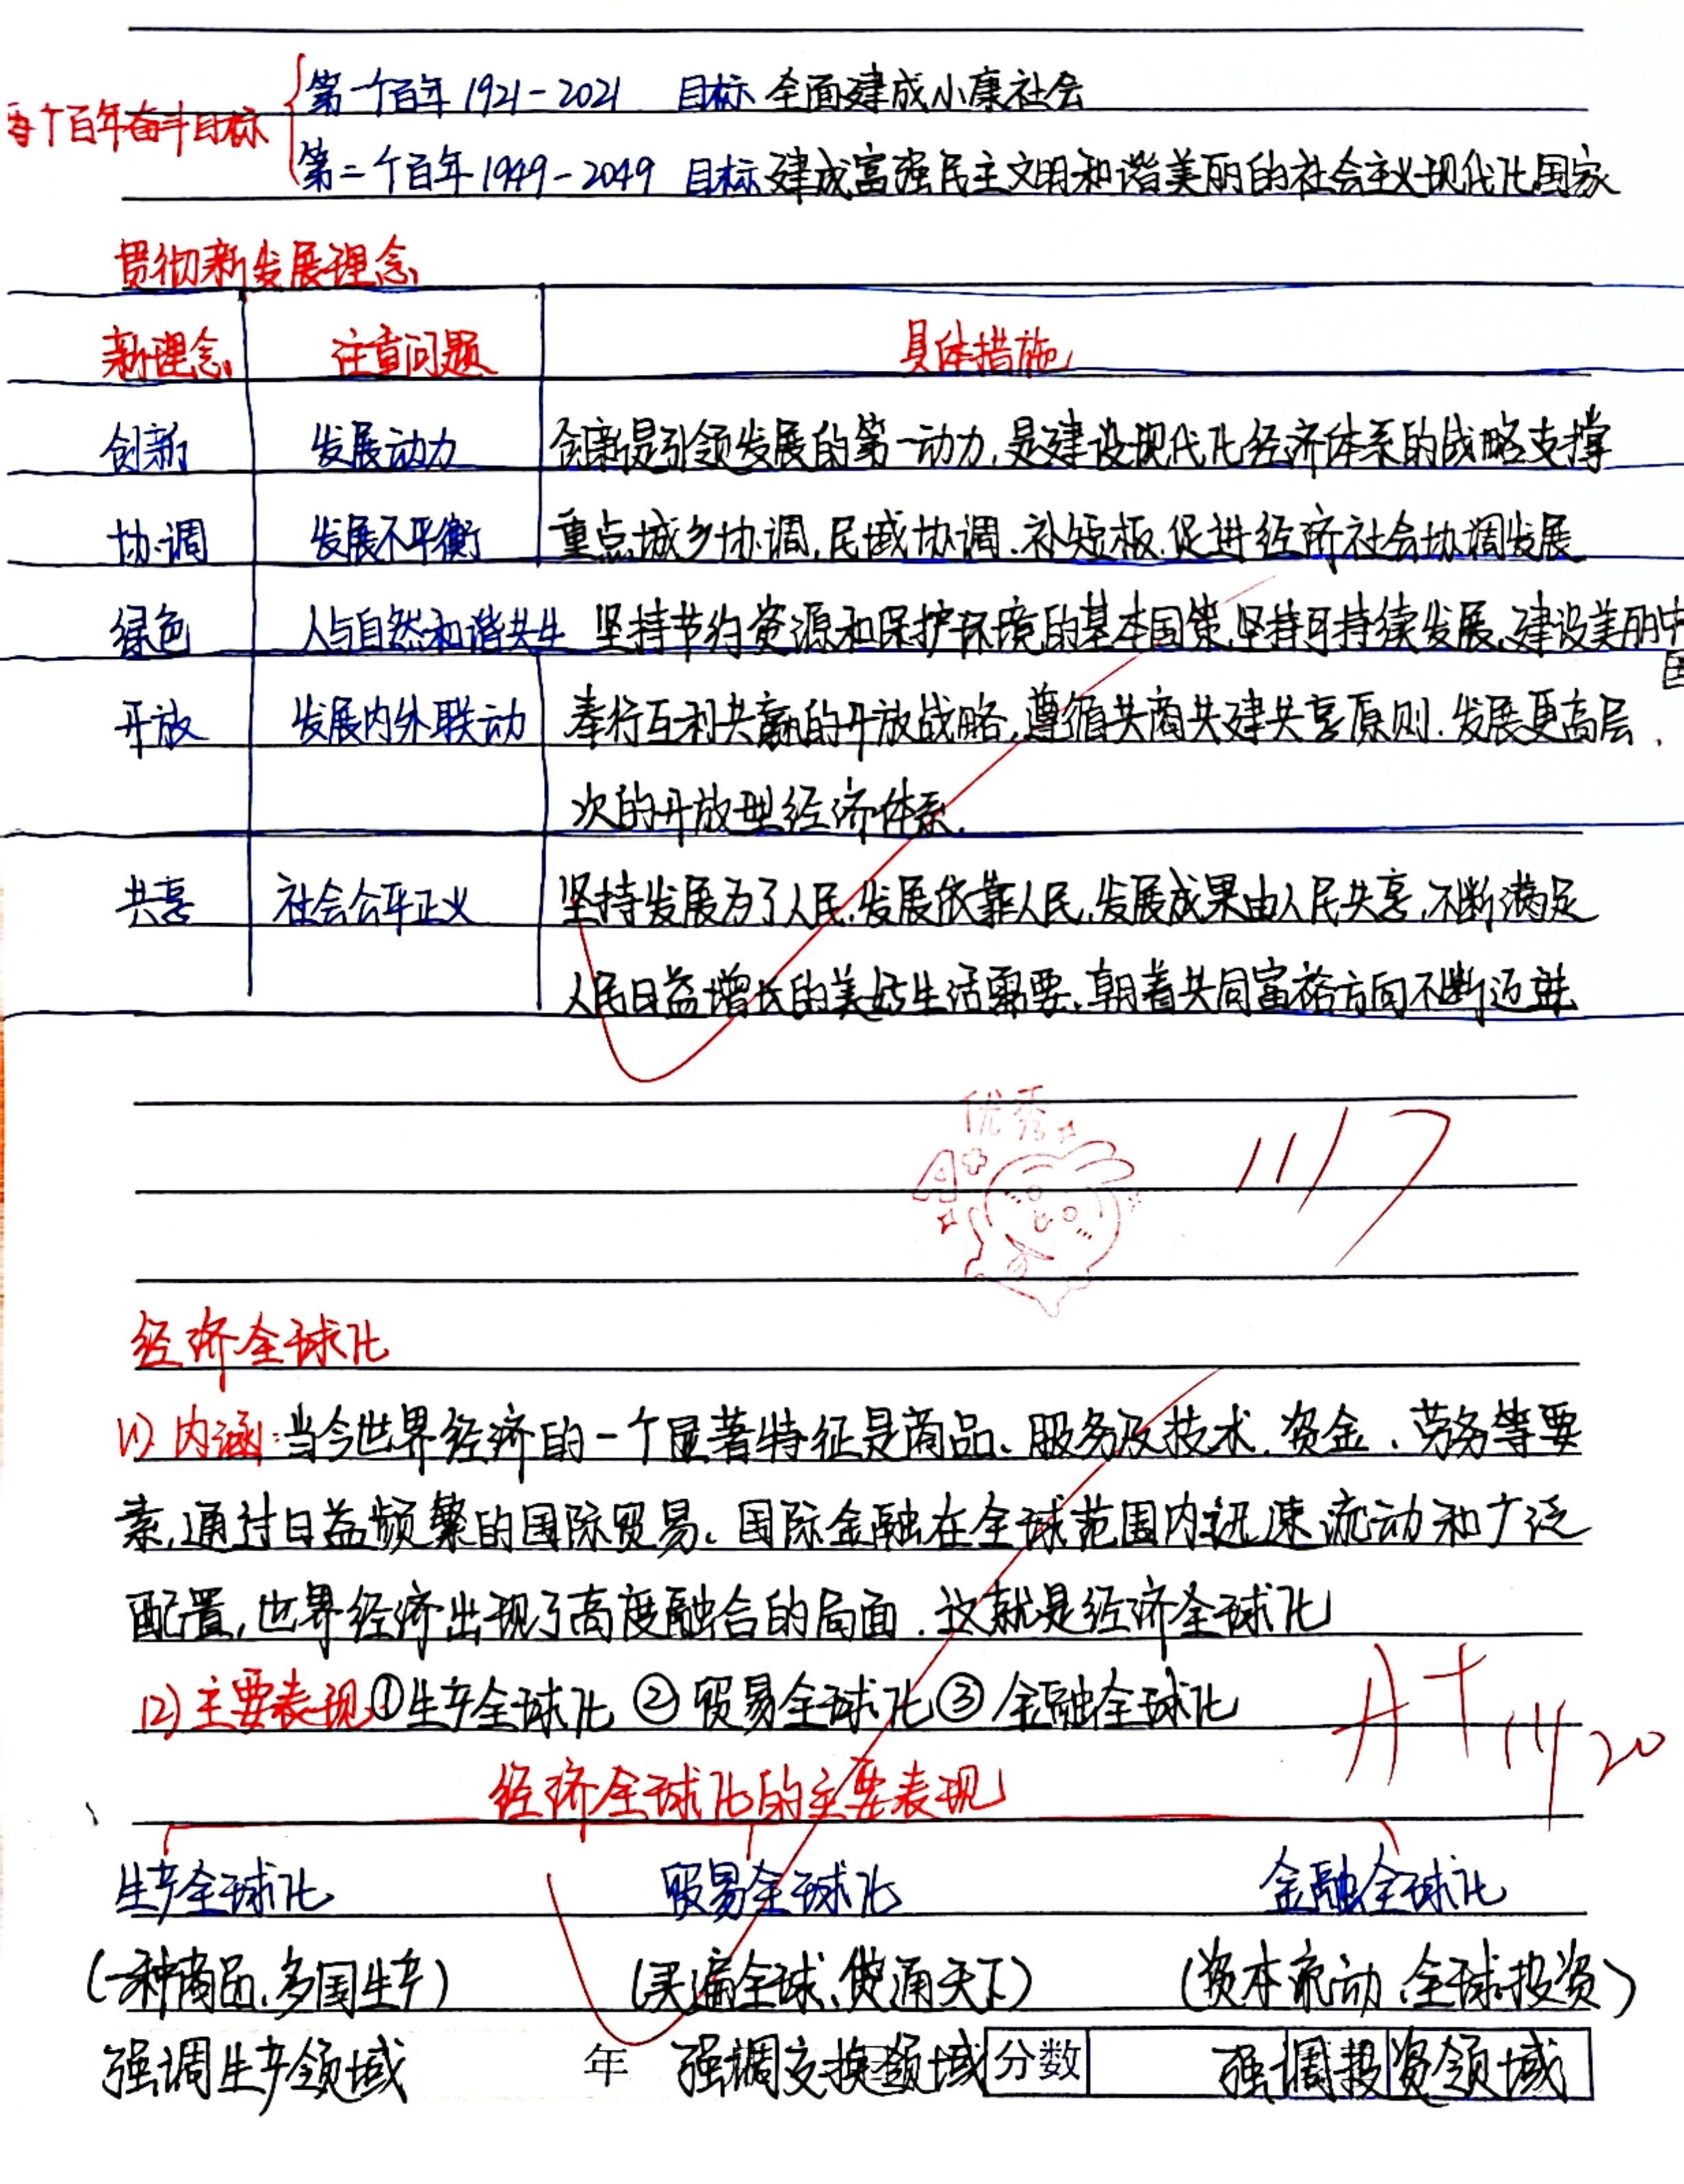 第一个百年 1921-2021 目标 全面建成小康社会
两个百年奋斗目标
第二个百年 1949-2049 目标 建成富强民主文明和谐美丽的社会主义现代化国家
贯彻新发展理念
新理念 注重问题 具体措施
创新 发展动力 创新是引领发展的第一动力,是建设现代化经济体系的战略支撑
协调 发展不平衡 重点城乡协调,民域协调、补短板,促进经济社会协调发展
绿色 人与自然和谐共生 坚持节约资源和保护环境的基本国策,坚持可持续发展、建设美丽中
国
开放 发展内外联动 奉行互利共赢的开放战略,遵循共商共建共享原则.发展更高层
次的开放型经济体系.
共享 社会公平正义 坚持发展为了人民,发展依靠人民,发展成果由人民共享,不断满足
人民日益增长的美好生活需要,朝着共同富裕方向不断迈进
优秀
A+
11/7
经济全球化
(1) 内涵:当今世界经济的一个显著特征是商品、服务及技术、资金、劳务等要
素,通过日益频繁的国际贸易、国际金融在全球范围内迅速流动和广泛
配置,世界经济出现了高度融合的局面.这就是经济全球化
(2) 主要表现①生产全球化 ②贸易全球化③金融全球化
A+ 11/20
经济全球化的主要表现
生产全球化 贸易全球化 金融全球化
(一种商品、多国生产) (买遍全球、货通天下) (资本流动、全球投资)
强调生产领域 年 强调交换领域 分数 强调投资领域